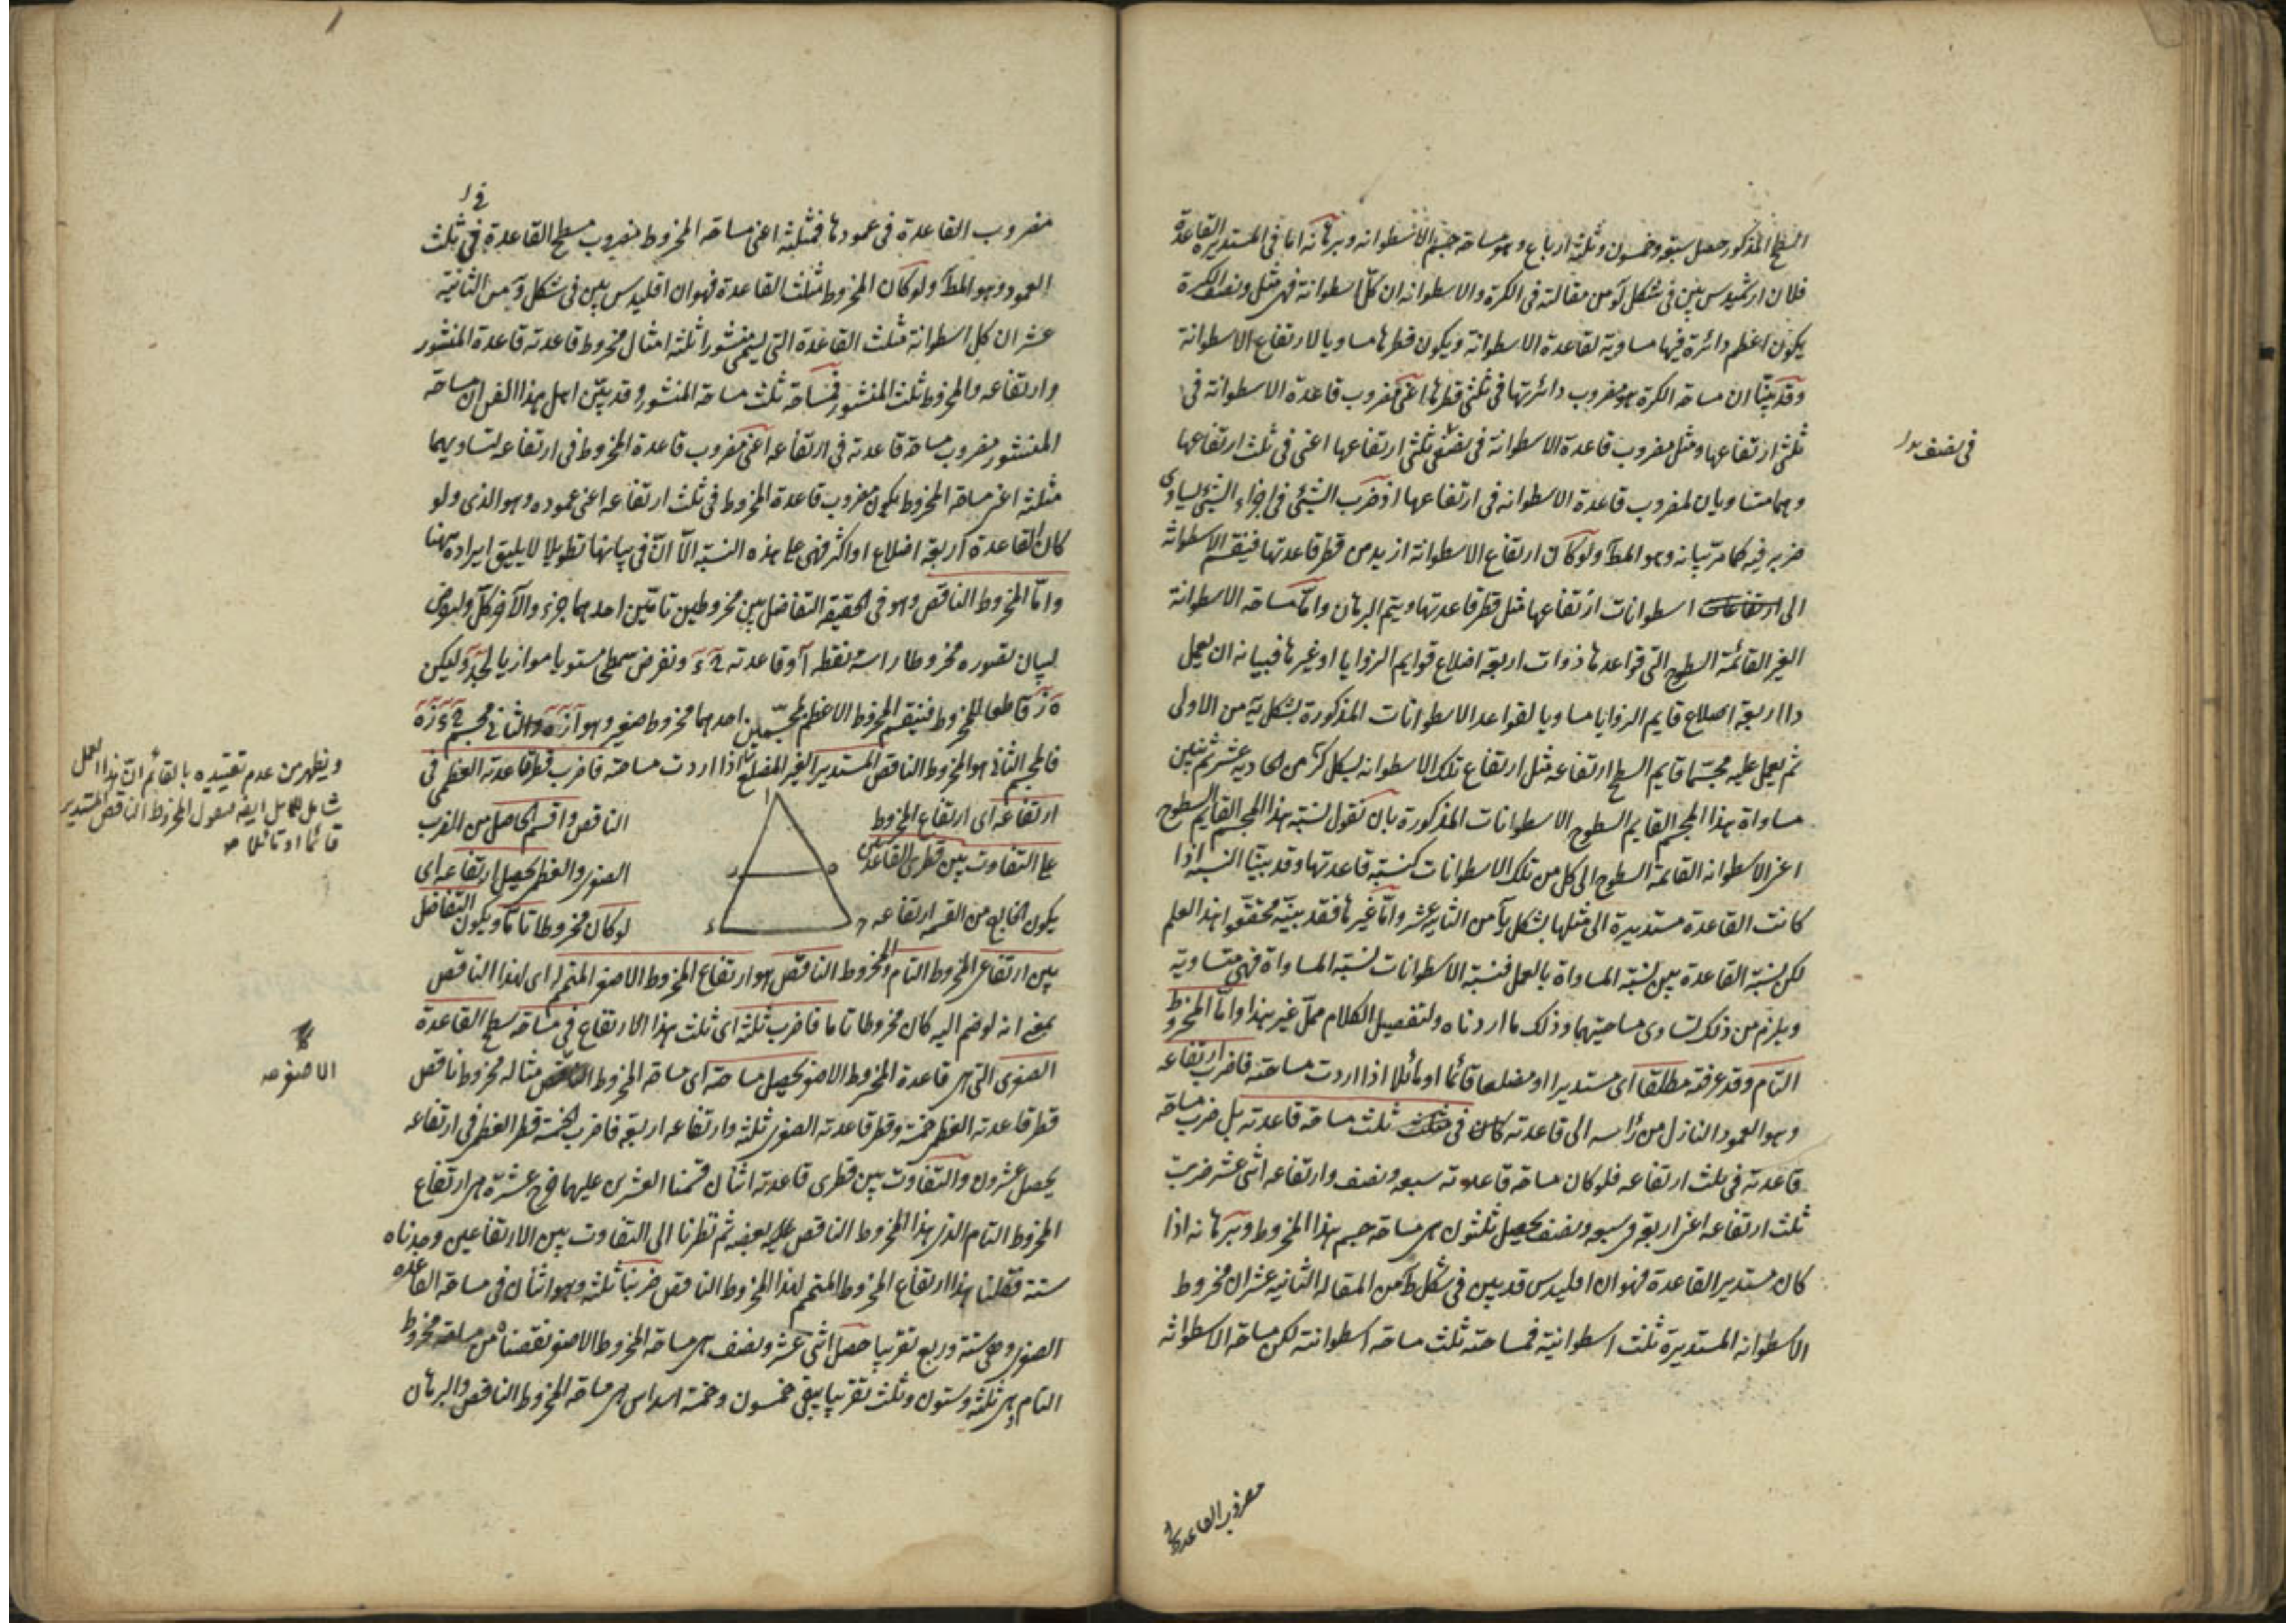 السطح المذكور حصل سبعة وخمسون وثلثة ارباع وهو مساحة جسم الاسطوانه وبرهانه اما فى المستديرة القاعدة
فلان ارشميدس بين فى شكل لو من مقالته فى الكرة والاسطوانه ان كل اسطوانة فهى مثل ونصف لكرة
يكون اعظم دائرة فيها مساوية لقاعدة الاسطوانة ويكون قطرها مساويا لارتفاع الاسطوانة
وقد بينا ان مساحة الكرة هو مضروب دائرتها فى ثلثى قطرها اعنى مضروب قاعدة الاسطوانة فى
ثلثى ارتفاعها ومثل مضروب قاعدة الاسطوانة فى نصف ثلثى ارتفاعها اعنى فى ثلث ارتفاعها
فى نصف بدل
وهما متساويان لمضروب قاعدة الاسطوانه فى ارتفاعها اذ ضرب الشئ فى اجزاء الشئ يساوى
ضربه فيه كما مر بيانه وهو المط ولو كان ارتفاع الاسطوانة ازيد من قطر قاعدتها فينقسم الاسطوانة
الى اسطوانات ارتفاعها مثل قطر قاعدتها ويتم البرهان واما مساحة الاسطوانة
الغير القائمة السطوح التى قواعدها ذوات اربعة اضلاع قوايم الزوايا او غيرها فبيانه ان يعمل
ذا اربعة اضلاع قايم الزوايا مساويا لقواعد الاسطوانات المذكورة بشكل يد من الاولى
ثم يعمل عليه مجسما قايم السطح ارتفاعه مثل ارتفاع تلك الاسطوانه بشكل من الحادية عشر ثم نبين
مساواة هذا المجسم القايم السطوح الاسطوانات المذكورة بان نقول نسبة هذا المجسم القايم السطوح
اعنى الاسطوانه القائمة السطوح الى كل من تلك الاسطوانات كنسبة قاعدتها وقد بينا النسبة اذا
كانت القاعدة مستديرة الى مثلها بشكل يا من الثانيه عشر واما غيرها فقد بينه محققوا هذا العلم
لكن نسبة القاعدة بين نسبة المساواة بالعمل فنسبة الاسطوانات نسبة المساواة فهى متساوية
ويلزم من ذلك تساوى مساحتيهما وذلك ما اردناه ولتفصيل الكلام محل غير هذا واما المخروط
التام وقد عرفته مطلقا اى مستديرا او مضلعا قائما او مائلا اذا اردت مساحته فاضرب ارتفاعه
وهو العمود النازل من راسه الى قاعدته فى ثلث مساحة قاعدته بل ضرب مساحة
قاعدته فى ثلث ارتفاعه فلو كان مساحة قاعدته سبعه ونصف وارتفاعه اثنى عشر ضربت
ثلث ارتفاعه اعنى اربعة فى سبعه ونصف يحصل ثلثون هى مساحة جسم هذا المخروط وبرهانه اذا
كان مستدير القاعدة فهو ان اقليدس قد بين فى شكل ط من المقاله الثانيه عشر ان مخروط
الاسطوانه المستديرة ثلث اسطوانية فمساحته ثلث مساحة اسطوانته لكن مساحة الاسطوانه
مضروب القاعدة
فى
مضروب القاعدة فى عمودها فثلثه اعنى مساحة المخروط مضروب سطح القاعدة فى ثلث
العمود وهو المط ولو كان المخروط مثلث القاعدة فهو ان اقليدس بين فى شكل و من الثانية
عشر ان كل اسطوانة مثلث القاعدة التى يسمى منشورا ثلثة امثال مخروط قاعدته قاعدة المنشور
وارتفاعه والمخروط ثلث المنشور فمساحة ثلث مساحة المنشور وقد بين اهل هذا الفن ان مساحة
المنشور مضروب مساحة قاعدته فى ارتفاعه اعنى مضروب قاعدة المخروط فى ارتفاعه لتساويهما
فثلثه اعنى مساحة المخروط يكون مضروب قاعدة المخروط فى ثلث ارتفاعه اعنى عموده وهو الذى ولو
كان القاعدة اربعة اضلاع او اكثر فهى على هذه النسبة الا ان فى بيانها تطويلا لا يليق ايراده ههنا
واما المخروط الناقص وهو فى الحقيقه التفاضل بين مخروطين تامين احدهما جزء والآخر كل ولنوض
لبيان تصوره مخروطا راسه نقطة ا وقاعدته ح د ونفرض سطحا مستويا موازيا لح د وليكن
ه ز قاطعا للمخروط فينقسم المخروط الاعظم بمجسمين احدهما مخروط صغير وهو ا ز ه والثانى مجسم ح د ز ه
فالمجسم الثانى هو المخروط الناقص المستدير الغير المضلع اذا اردت مساحته فاضرب قطر قاعدته العظمى فى
ارتفاعه اى ارتفاع المخروط الناقص واقسم الحاصل من الضرب
على التفاوت بين قطرى القاعدتين الصغرى والعظمى يحصل ارتفاعه اى
يكون الخارج من القسمة ارتفاعه لو كان مخروطا تاما ويكون التفاضل
ا
ه ز
ح د
بين ارتفاعى المخروط التام والمخروط الناقص هو ارتفاع المخروط الاصغر المتمم له اى لهذا الناقص
بمعنى انه لو ضم اليه كان مخروطا تاما فاضرب ثلثه اى ثلث هذا الارتفاع فى مساحة سطح القاعدة
الصغرى التى هى قاعدة المخروط الاصغر يحصل مساحته اى مساحة المخروط الناقص مثاله مخروط ناقص
قطر قاعدته العظمى خمسة وقطر قاعدته الصغرى ثلثة وارتفاعه اربعة فاضرب الخمسة قطر العظمى فى ارتفاعه
يحصل عشرون والتفاوت بين قطرى قاعدته اثنان قسمنا العشرين عليهما خرج عشرة هى ارتفاع
المخروط التام الذى هذا المخروط الناقص بعضه ثم نظرنا الى التفاوت بين الارتفاعين وجدناه
ستة فقلنا هذا ارتفاع المخروط المتمم لهذا المخروط الناقص ضربنا ثلثه وهو اثنان فى مساحة القاعدة
الصغرى وهى ستة وربع تقريبا حصل اثنى عشر ونصف هى مساحة المخروط الاصغر نقصناه من مساحة مخروط
التام وهى ثلثة وستون وثلث تقريبا يبقى خمسون وخمسة اسداس هى مساحة المخروط الناقص والبرهان
ويظهر من عدم تقييده بالقائم ان هذا العمل
شامل للمايل ايضا المخروط الناقص المستدير
قائما او مائلا صه
الاصغر صه